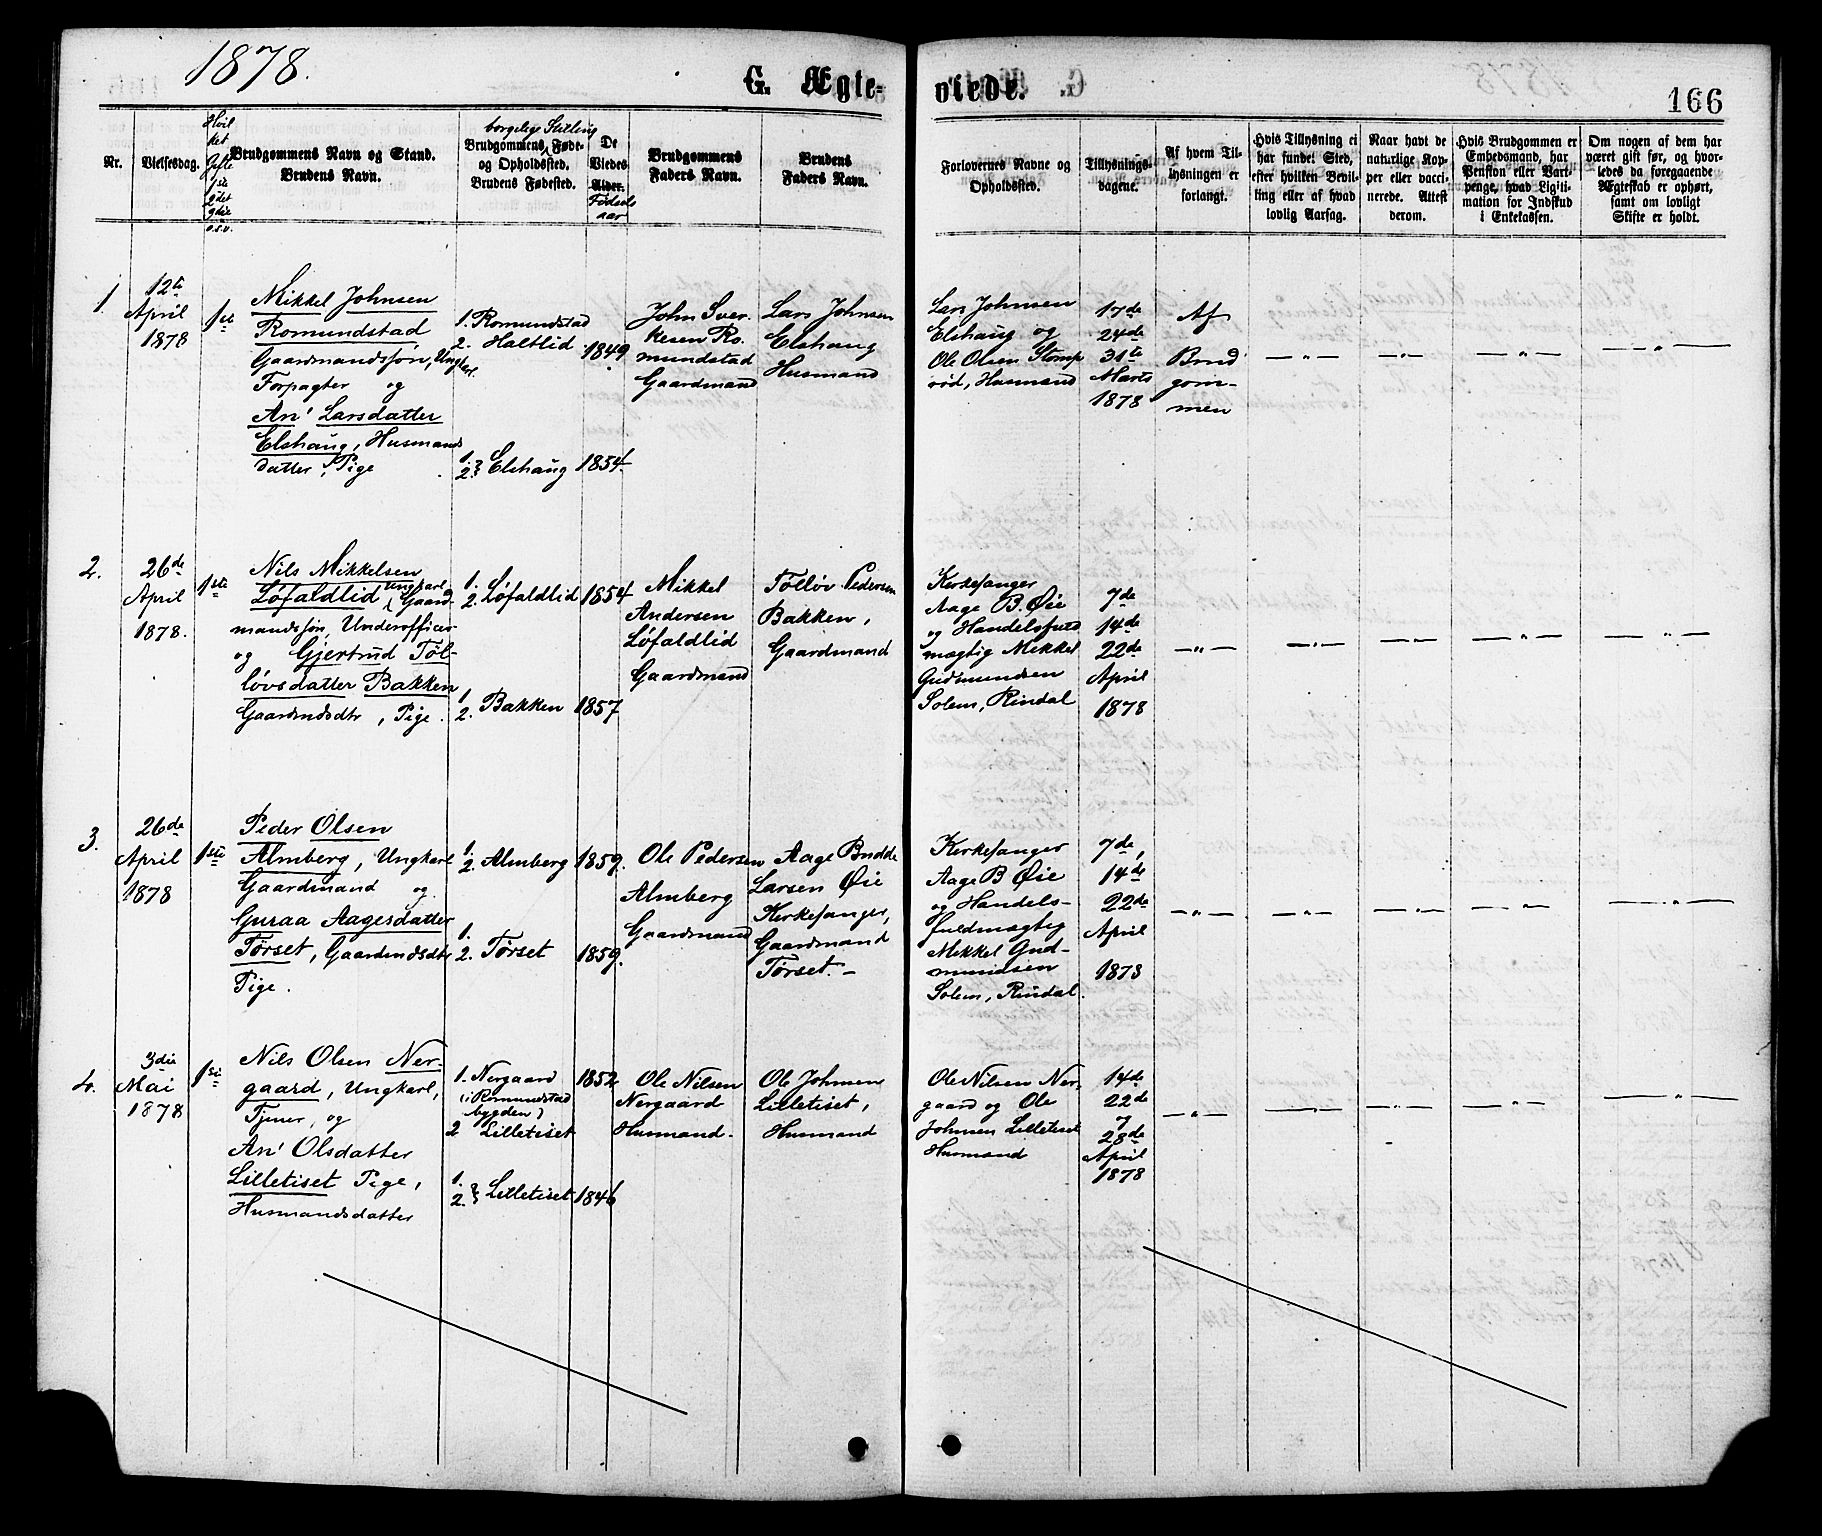 1878.
G. Ægte-
viede.
166
Nr.
Vielsesdag.
Hvil
ket
Gifte
1ste
2det
3die
o.s.v.
Brudgommens Navn og Stand.
Brudens Navn.
borgelige Stilling
Brudgommens Føde-
og Opholdssted.
Brudens Fødested.
De
Viedes
Alder.
Fødsels
aar
Brudgommens
Faders Navn.
Brudens
Faders Navn.
Forlovernes Navne og
Opholdssted.
Tillysnings-
dagene.
Af hvem Til-
lysningen er
forlangt.
Hvis Tillysning ei
har fundet Sted,
efter hvilken Bevil-
ling eller af hvad
lovlig Aarsag.
Naar havt de
naturlige Kop-
per eller vacci-
nerede. Attest
derom.
Hvis Brudgommen er
Embedsmand, har
Pension eller Vart-
penge, hvad Ligiti-
mation for Indskud
i Enkekassen.
Om nogen af dem har
været gift før, og hvor-
ledes da foregaaende
Ægteskab er ophørt,
samt om lovligt
Skifte er holdt.
1
12te
April
1878
1ste
Mikkel Johnsen
Romundstad
Gaardmandssøn, Ungkarl.
Forpagter og
An' Larsdatter
Elshaug, Husmands
datter, Pige
1. Romundstad
2. Haltlid
1849.
1.
2. Elshaug
1854.
John Sver-
kesen Ro-
mundstad
Gaardmand
Lars Johnsen
Elshaug
Husmand
Lars Johnsen
Elshaug og
Ole Olsen Stomp
rød, Husmand
17de
24de
31te
Marts
1878
Af
Brud
gom-
men
— „ —
— „ —
— „ —
— „ —
2.
26de
April
1878.
1ste
Nils Mikkelsen
Løfaldlid Ungkarl, Gaard-
mandssøn, Underofficer
og Gjertrud Tøl-
løvsdatter Bakken
Gaardmdsdtr, Pige.
1.
2. Løfaldlid
1854
1.
2. Bakken
1857
Mikkel
Andersen
Løfaldlid
Gaardmand
Tølløv Pedersen
Bakken,
Gaardmand
Kirkesanger
Aage B. Øie
og Handelsfuld
mægtig Mikkel
Gudmundsen
Solem, Rindal
7de
14de
22de
April
1878
— „ —
— „ —
— „ —
— „ —
— „ —
3.
26de
April
1878
1ste
Peder Olsen
Almberg, Ungkarl
Gaardmand og
Guraa Aagesdatter
Tørset, Gaardmdsdtr
Pige.
1.
2. Almberg
1859.
1.
2. Tørset
1859.
Ole Pedersen
Almberg
Gaardmand
Aage Budde
Larsen Øie
Kirkesanger,
Gaardmand
Tørset. —
Kirkesanger
Aage B Øie
og Handels-
fuldmægtig
Mikkel Gud-
mundsen
Solem, Rindal.
7de,
14de
22de
April
1878
— „ —
— „ —
— „ —
— „ —
— „ —
4.
3die
Mai
1878
1ste
Nils Olsen Ner-
gaard, Ungkarl,
Tjener, og
An' Olsdatter
Lilletiset Pige,
Husmandsdatter
1. Nergaard
(i Romundstad
bygden)
2 Lilletiset
1852
1.
2. Lilletiset
1846
Ole Nilsen
Nergaard
Husmand.
Ole Johnsen
Lilletiset,
Husmand
Ole Nilsen Ner-
gaard og Ole
Johnsen Lilletiset
Husmand
14de
22de
og
28de
April
1878
— „ —
— „ —
— „ —
— „ —
— „ —